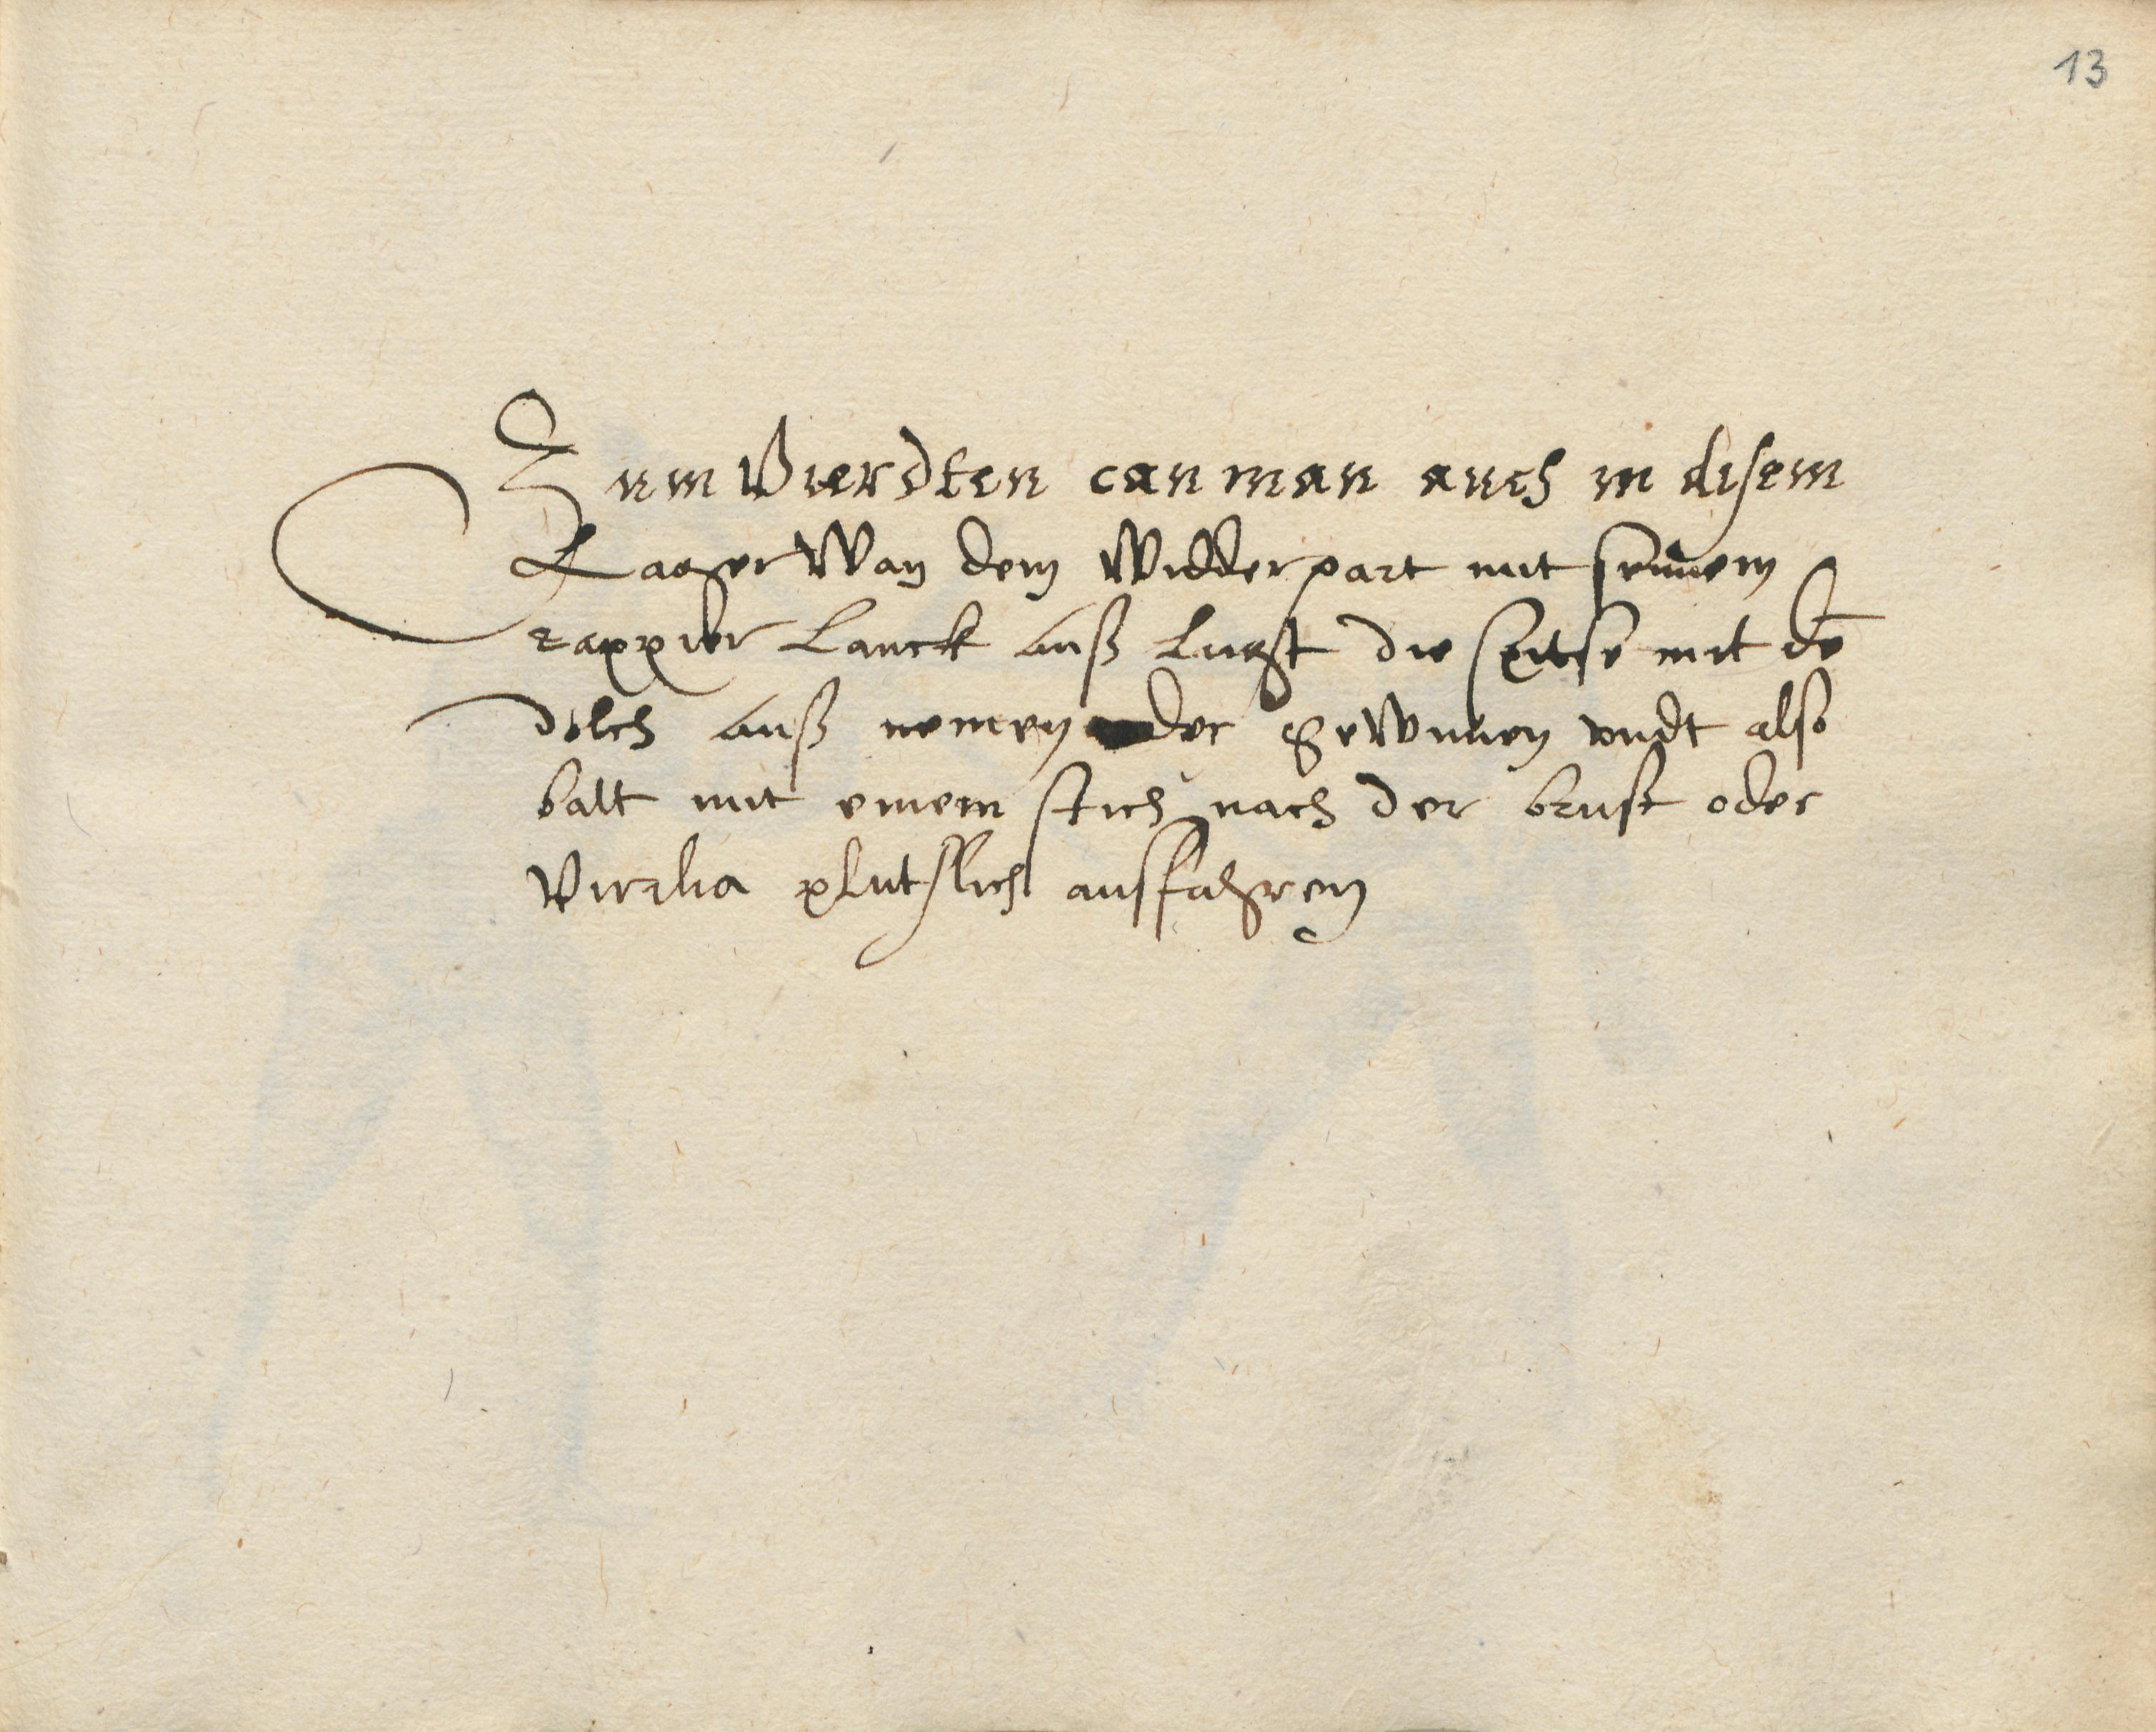 13
Zum Vierdten can man auch in disem
Lager Wan dem Widderpart mit seinem
rappier Lanck auß ligt die spitse mit dē
dolch auß nemen oder gewinnen vndt also
balt mit einem stich nach der brust oder
Virzha plutslich ausfahren